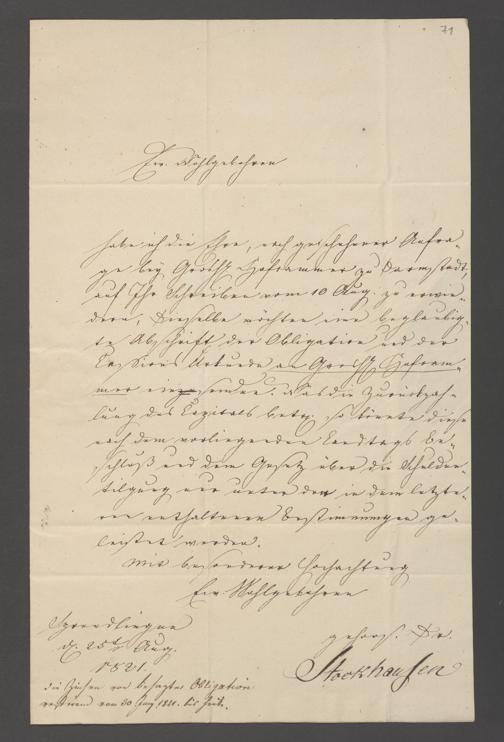 71
Ew. Wohlgebohren
habe ich die Ehre, nach geschehener Anfra-
ge bey Grosshz Hofkammer zu Darmstadt,
auf Ihr Schreiben vom 10 Aug. zu erwie-
dern, Dieselbe möchten eine beglaubig-
te Abschrift der Obligation und der
Cessions Urkunde an Grosshz Hofkam-
mer einsenden. Was die Zurückzah-
lung des Capitals betr. so könnte diese
nach dem vorliegenden Landtags be-
schluß und dem Gesetz über die Schulden-
tilgung nur unter den in dem letzte-
ren enthaltenen Bestimmungen ge-
leistet werden.
Mit besonderer Hochachtung
Ew. Wohlgebohren
Sprendlingen
d. 25t Aug.
1821.
gehors. Dr.
Stockhausen
die Zinsen von besagter Obligation
vom 30 1821. bis